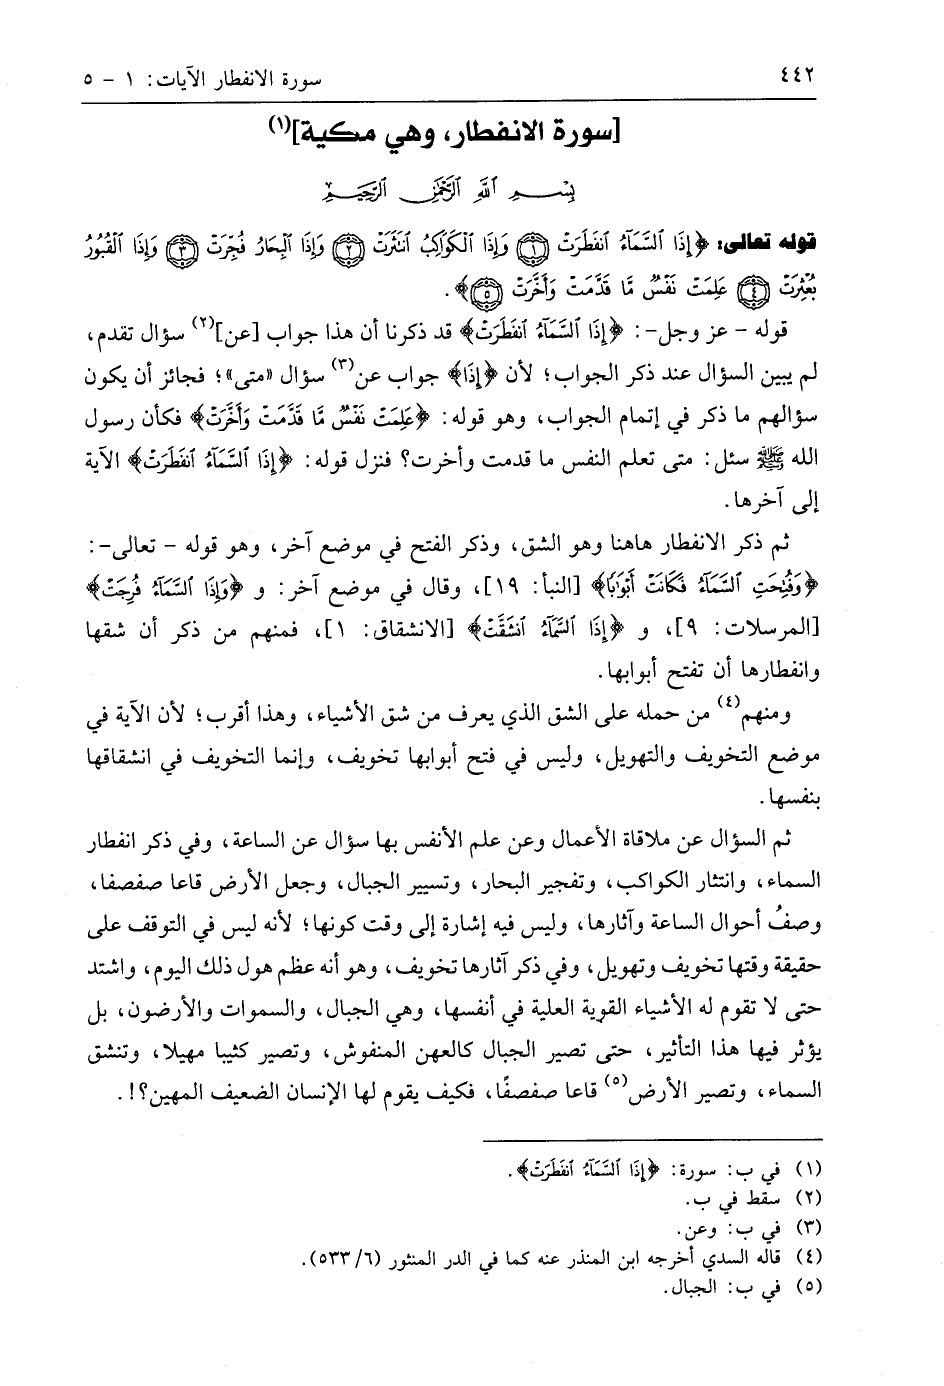 ٤٤٢
سورة الانفطار الآيات: ١ - ٥
[سورة الانفطار، وهي مكية](١)
بِسْمِ اللَّهِ الرَّحْمَٰنِ الرَّحِيمِ
قوله تعالى: ﴿إِذَا ٱلسَّمَآءُ ٱنفَطَرَتْ ﴿١﴾ وَإِذَا ٱلْكَوَاكِبُ ٱنتَثَرَتْ ﴿٢﴾ وَإِذَا ٱلْبِحَارُ فُجِّرَتْ ﴿٣﴾ وَإِذَا ٱلْقُبُورُ
بُعْثِرَتْ ﴿٤﴾ عَلِمَتْ نَفْسٌ مَّا قَدَّمَتْ وَأَخَّرَتْ ﴿٥﴾﴾.
قوله - عز وجل-: ﴿إِذَا ٱلسَّمَآءُ ٱنفَطَرَتْ﴾ قد ذكرنا أن هذا جواب [عن](٢) سؤال تقدم،
لم يبين السؤال عند ذكر الجواب؛ لأن ﴿إِذَا﴾ جواب عن(٣) سؤال «متى»؛ فجائز أن يكون
سؤالهم ما ذكر في إتمام الجواب، وهو قوله: ﴿عَلِمَتْ نَفْسٌ مَّا قَدَّمَتْ وَأَخَّرَتْ﴾ فكأن رسول
الله ﷺ سئل: متى تعلم النفس ما قدمت وأخرت؟ فنزل قوله: ﴿إِذَا ٱلسَّمَآءُ ٱنفَطَرَتْ﴾ الآية
إلى آخرها.
ثم ذكر الانفطار هاهنا وهو الشق، وذكر الفتح في موضع آخر، وهو قوله - تعالى-:
﴿وَفُتِحَتِ ٱلسَّمَآءُ فَكَانَتْ أَبْوَٰبًا﴾ [النبأ: ١٩]، وقال في موضع آخر: و ﴿وَإِذَا ٱلسَّمَآءُ فُرِجَتْ﴾
[المرسلات: ٩]، و ﴿إِذَا ٱلسَّمَآءُ ٱنشَقَّتْ﴾ [الانشقاق: ١]، فمنهم من ذكر أن شقها
وانفطارها أن تفتح أبوابها.
ومنهم(٤) من حمله على الشق الذي يعرف من شق الأشياء، وهذا أقرب؛ لأن الآية في
موضع التخويف والتهويل، وليس في فتح أبوابها تخويف، وإنما التخويف في انشقاقها
بنفسها.
ثم السؤال عن ملاقاة الأعمال وعن علم الأنفس بها سؤال عن الساعة، وفي ذكر انفطار
السماء، وانتثار الكواكب، وتفجير البحار، وتسيير الجبال، وجعل الأرض قاعا صفصفا،
وصفُ أحوال الساعة وآثارها، وليس فيه إشارة إلى وقت كونها؛ لأنه ليس في التوقف على
حقيقة وقتها تخويف وتهويل، وفي ذكر آثارها تخويف، وهو أنه عظم هول ذلك اليوم، واشتد
حتى لا تقوم له الأشياء القوية العلية في أنفسها، وهي الجبال، والسموات والأرضون، بل
يؤثر فيها هذا التأثير، حتى تصير الجبال كالعهن المنفوش، وتصير كثيبا مهيلا، وتنشق
السماء، وتصير الأرض(٥) قاعا صفصفًا، فكيف يقوم لها الإنسان الضعيف المهين؟!.
(١) في ب: سورة: ﴿إِذَا ٱلسَّمَآءُ ٱنفَطَرَتْ﴾.
(٢) سقط في ب.
(٣) في ب: وعن.
(٤) قاله السدي أخرجه ابن المنذر عنه كما في الدر المنثور (٦/ ٥٣٣).
(٥) في ب: الجبال.